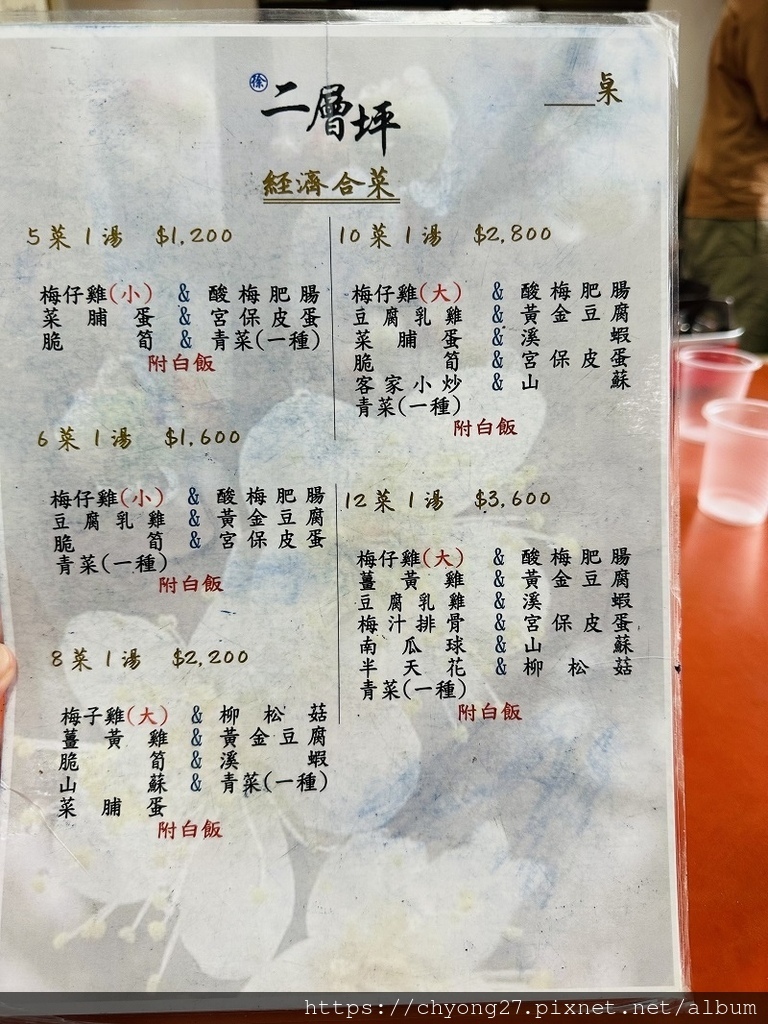 徐 二層坪
＿＿桌
經濟合菜
5菜1湯 $1,200
梅仔雞(小) & 酸梅肥腸
菜脯蛋 & 宮保皮蛋
脆筍 & 青菜(一種)
附白飯
6菜1湯 $1,600
梅仔雞(小) & 酸梅肥腸
豆腐乳雞 & 黃金豆腐
脆筍 & 宮保皮蛋
青菜(一種)
附白飯
8菜1湯 $2,200
梅子雞(大) & 柳松菇
薑黃雞 & 黃金豆腐
脆筍 & 溪蝦
山蘇 & 青菜(一種)
菜脯蛋
附白飯
10菜1湯 $2,800
梅仔雞(大) & 酸梅肥腸
豆腐乳雞 & 黃金豆腐
菜脯蛋 & 溪蝦
脆筍 & 宮保皮蛋
客家小炒 & 山蘇
青菜(一種)
附白飯
12菜1湯 $3,600
梅仔雞(大) & 酸梅肥腸
薑黃雞 & 黃金豆腐
豆腐乳雞 & 溪蝦
梅汁排骨 & 宮保皮蛋
南瓜球 & 山蘇
半天花 & 柳松菇
青菜(一種)
附白飯
https://chyong27.pixnet.net/album